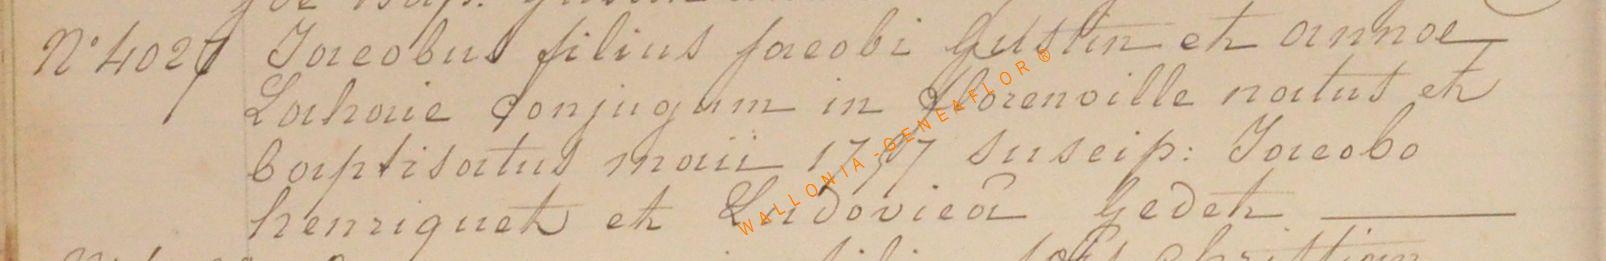 N° 4027 Jacobus filius jacobi Gustin et annae
Lahaie Conjugum in Florenville natus et
baptisatus maii 17 7 suscip: Jacobo
henriquet et Ludovicâ Gedet
WALLONIA-GENEAFLOR®